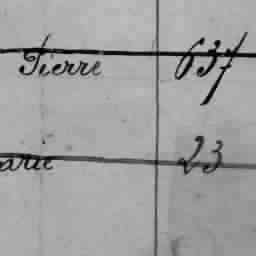 Pierre 637
arie 23